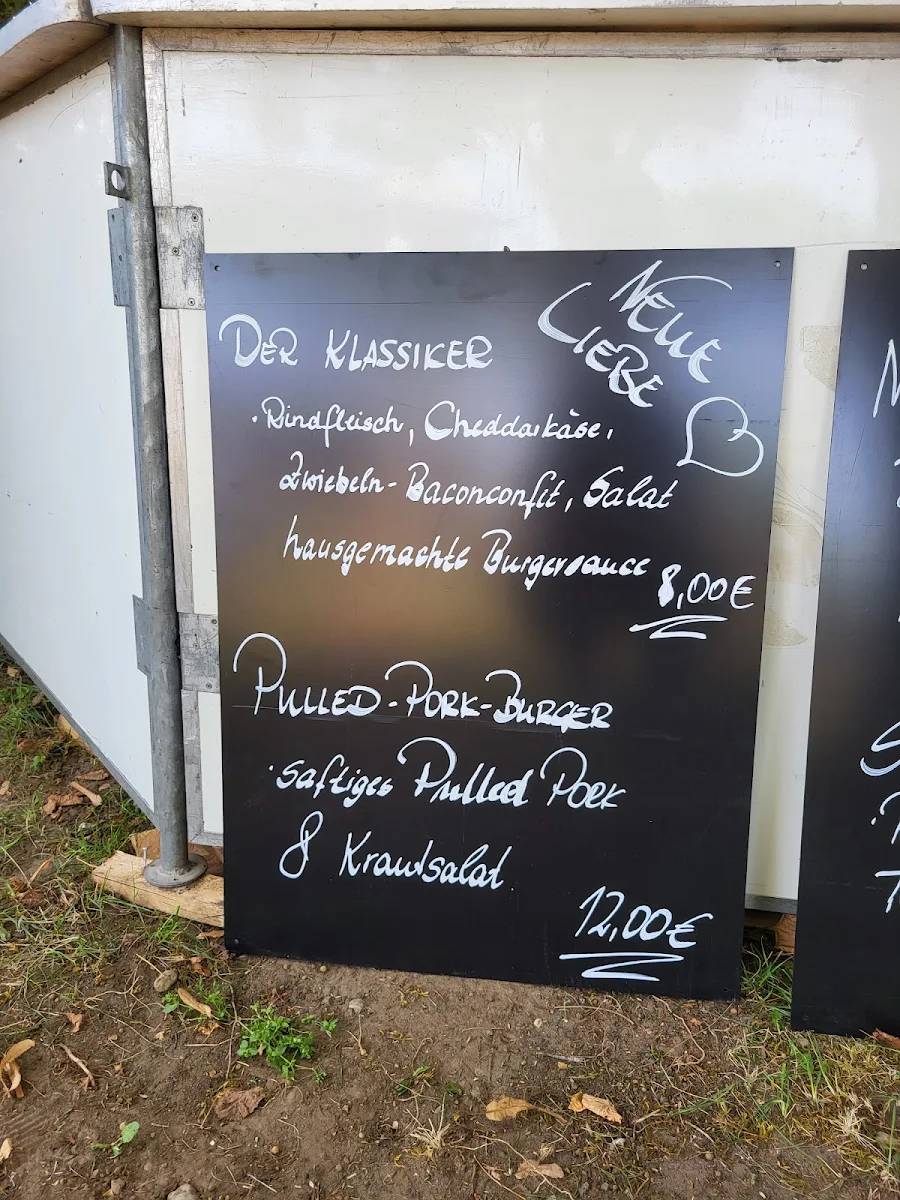 NEUE
LIEBE
DER KLASSIKER
· Rindfleisch, Cheddarkäse,
Zwiebeln-Baconconfit, Salat
hausgemachte Burgersauce
8,00€
PULLED-PORK-BURGER
· saftiges Pulled Pork
& Krautsalat
12,00€